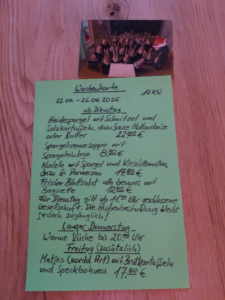 Wochenkarte
22.04. - 26.04. 2025
ab Dienstag
Heidespargel mit Schnitzel und
Salzkartoffeln, dazu Sauce Hollandaise
oder Butter 22,00 €
Spargelcremesuppe mit
Spargeleinlage 8,90 €
Nudeln mit Spargel und Kirschtomaten,
dazu Parmesan
Frischer Blattsalat
Baguette 12,00 €
Für Dienstag gilt ab Uhr geschlossene
Gesellschaft. Die bleibt
jedoch zugänglich!
Langer Donnerstag
Warme Küche bis 20.00 Uhr
Freitag (zusätzlich)
Matjes (nordd. Art) mit Bratkartoffeln
und Speckbohnen 17,90 €